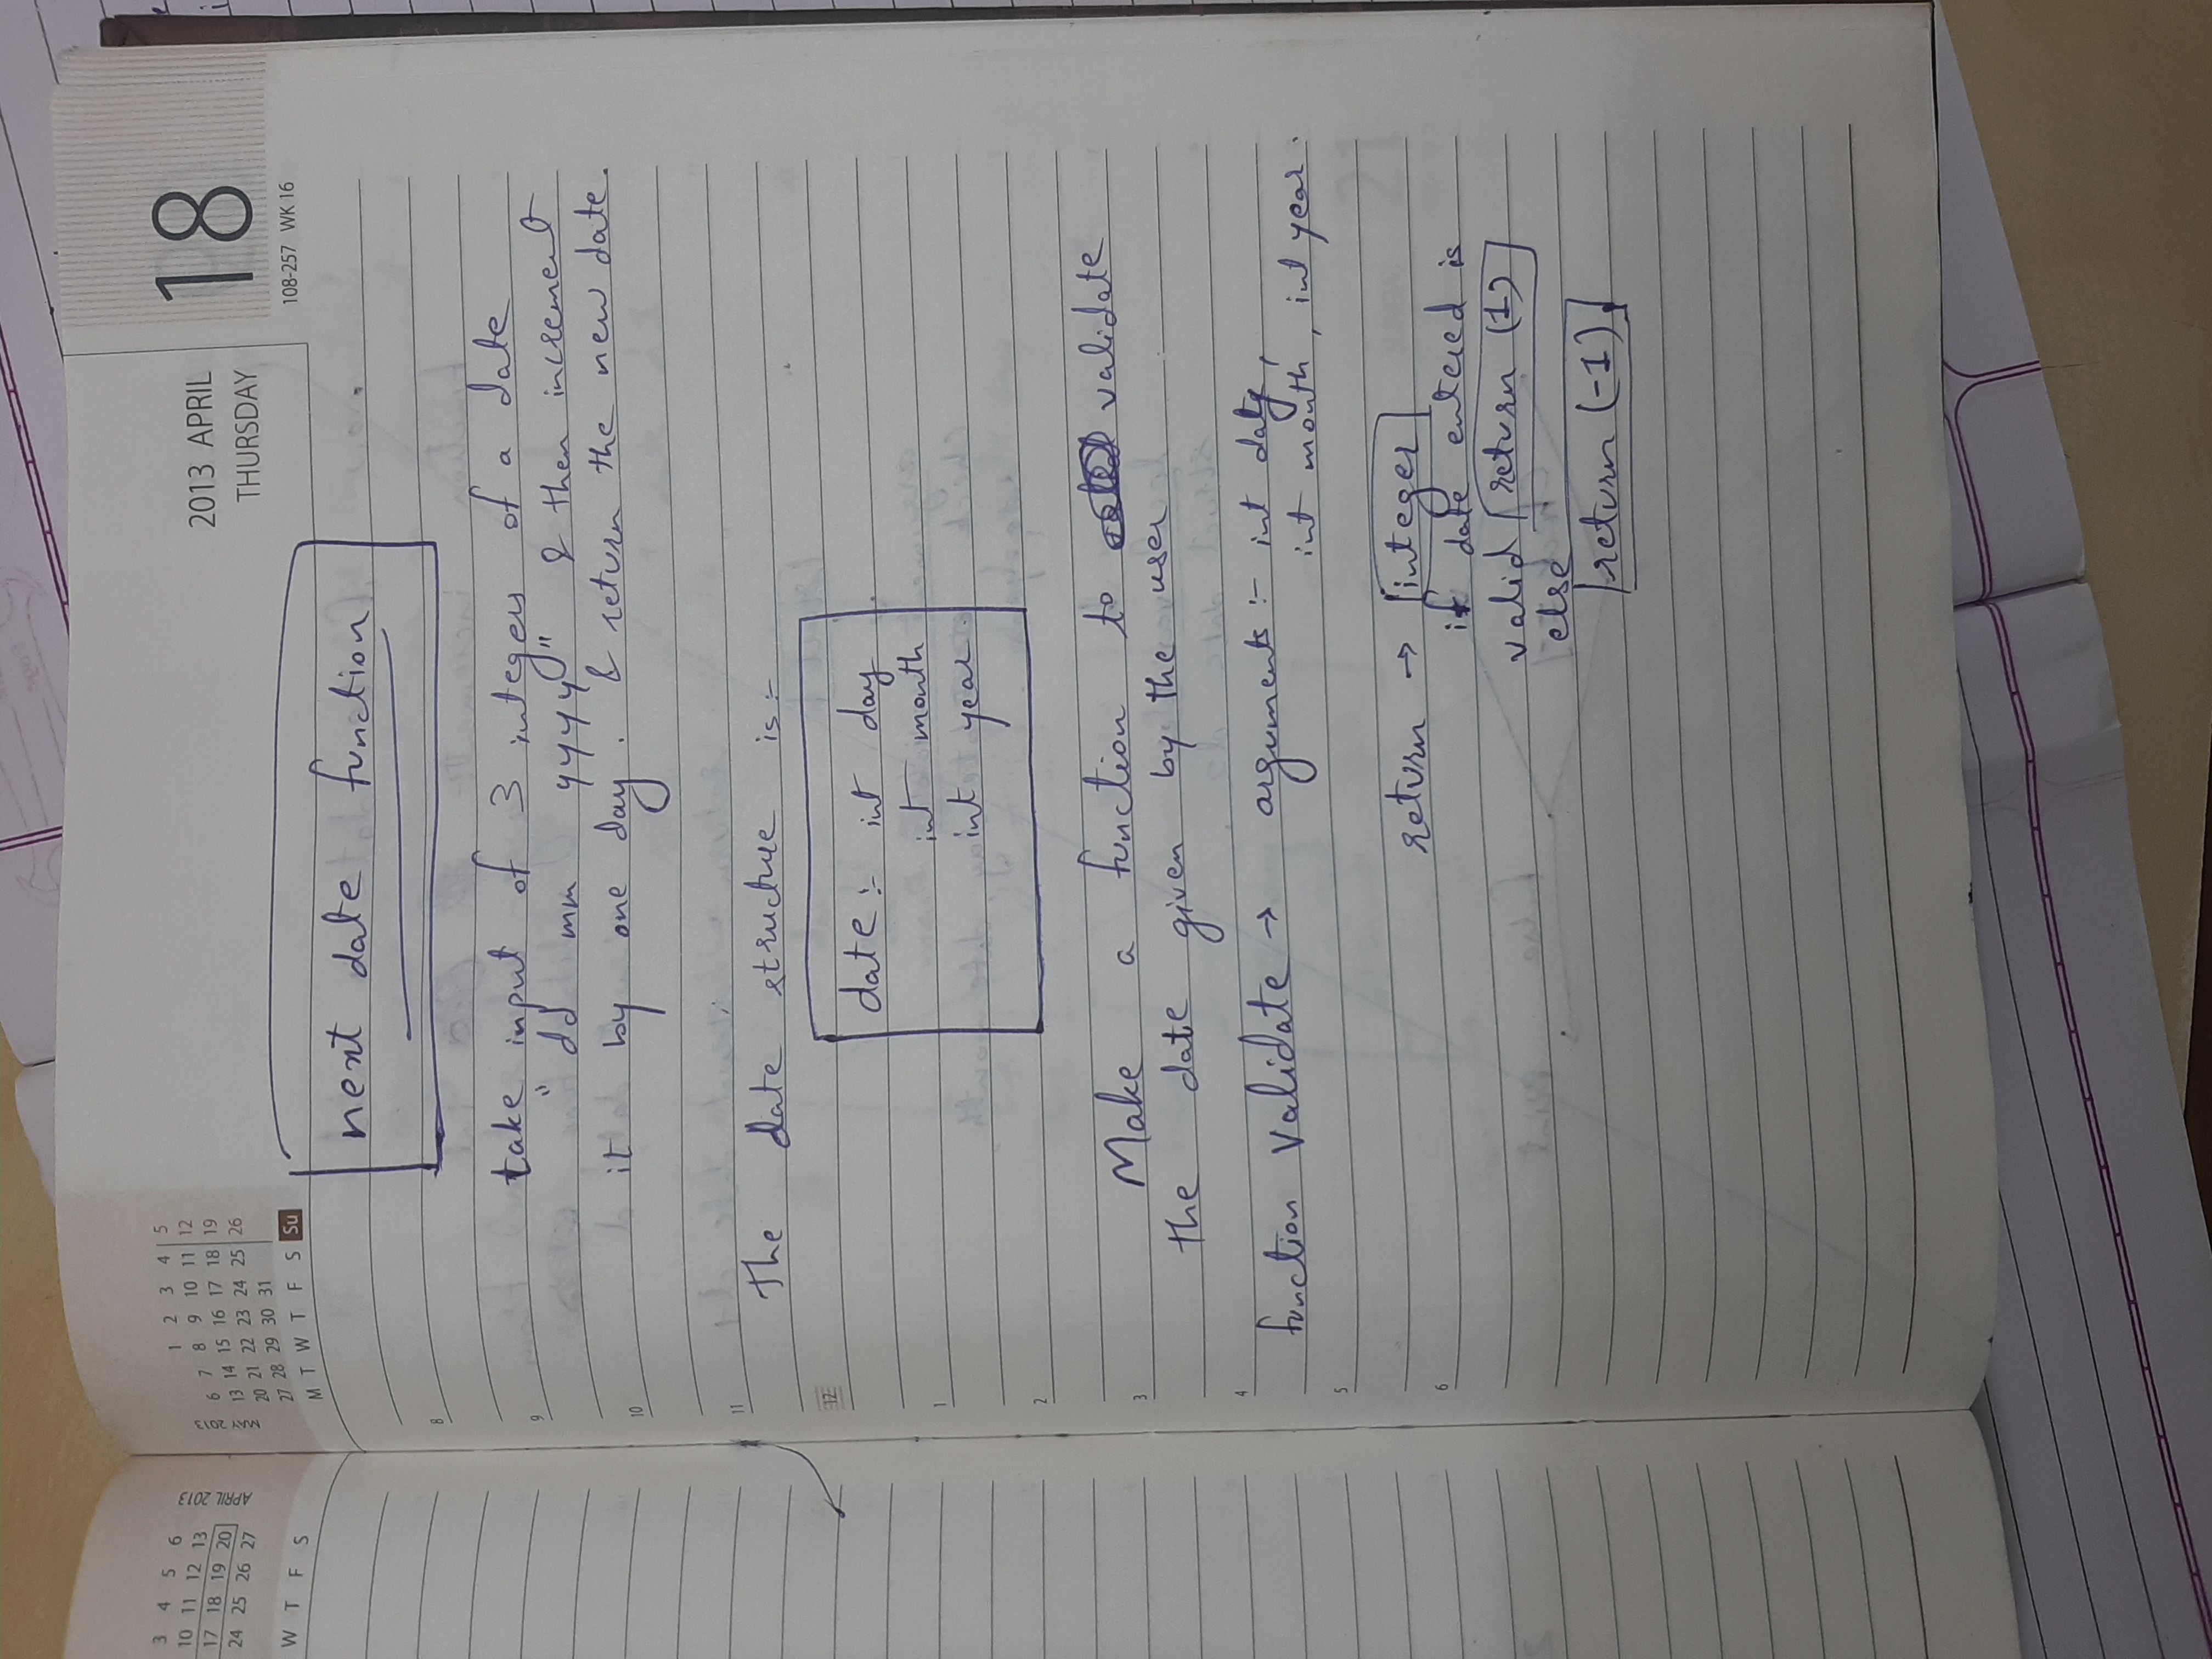 3 4 5 6
10 11 12 13
17 18 19 20
24 25 26 27
W T F S
APRIL 2013
MAY 2013
1 2 3 4 5
6 7 8 9 10 11 12
13 14 15 16 17 18 19
20 21 22 23 24 25 26
27 28 29 30 31
M T W T F S Su
2013 APRIL
THURSDAY
18
108-257 WK 16
next date function
8
take input of 3 integers of a date
9
"dd mm yyyy" & then increment
it by one day. & return the new date.
10
11
The date structure is :-
12
date :- int day
int month
1
int year.
2
Make a function to validate
3
the date given by the user
4
function Validate → arguments :- int day,
int month, int year.
5
return → integer
6
if date entered is
valid return (1)
else
return (-1).